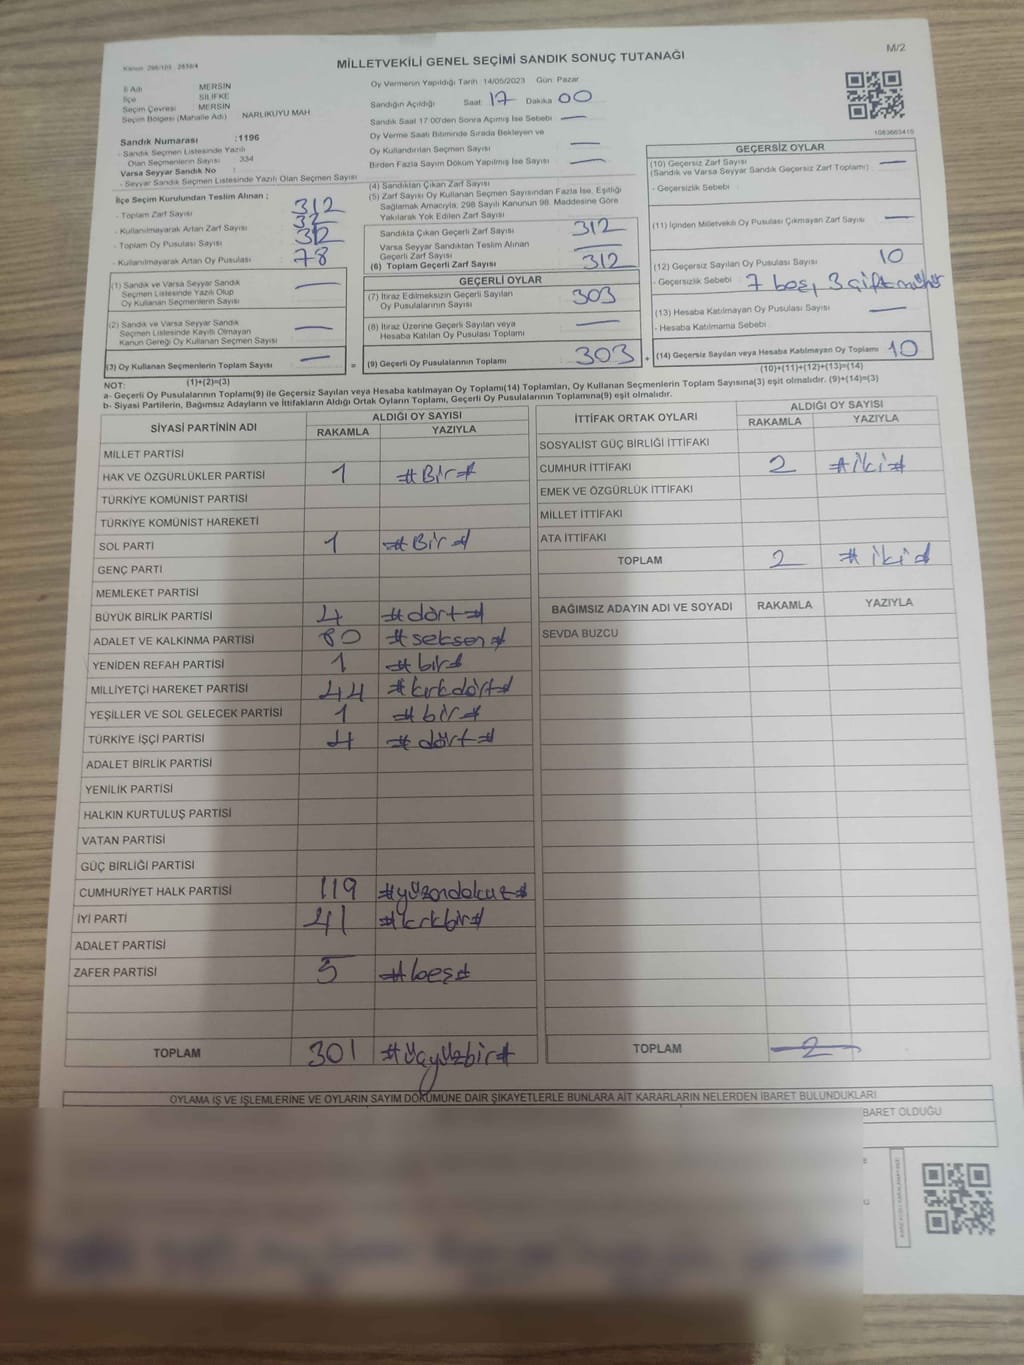 Kanun 298/105 , 2839/4
M/2
MİLLETVEKİLİ GENEL SEÇİMİ SANDIK SONUÇ TUTANAĞI
İl Adı MERSİN
İlçe SİLİFKE
Seçim Çevresi MERSİN
Seçim Bölgesi (Mahalle Adı) NARLIKUYU MAH
Sandık Numarası :1196
- Sandık Seçmen Listesinde Yazılı
Olan Seçmenlerin Sayısı : 334
Varsa Seyyar Sandık No :
- Seyyar Sandık Seçmen Listesinde Yazılı Olan Seçmen Sayısı
Oy Vermenin Yapıldığı Tarih 14/05/2023 Gün Pazar
Sandığın Açıldığı Saat 17 Dakika 00
Sandık Saat 17:00'den Sonra Açılmış İse Sebebi —
Oy Verme Saati Bitiminde Sırada Bekleyen ve
Oy Kullandırılan Seçmen Sayısı —
Birden Fazla Sayım Döküm Yapılmış İse Sayısı —
1083663410
İlçe Seçim Kurulundan Teslim Alınan ;
- Toplam Zarf Sayısı 312
- Kullanılmayarak Artan Zarf Sayısı
- Toplam Oy Pusulası Sayısı
- Kullanılmayarak Artan Oy Pusulası 78
(1) Sandık ve Varsa Seyyar Sandık
Seçmen Listesinde Yazılı Olup
Oy Kullanan Seçmenlerin Sayısı —
(2) Sandık ve Varsa Seyyar Sandık
Seçmen Listesinde Kayıtlı Olmayan
Kanun Gereği Oy Kullanan Seçmen Sayısı —
(3) Oy Kullanan Seçmenlerin Toplam Sayısı —
(4) Sandıktan Çıkan Zarf Sayısı
(5) Zarf Sayısı Oy Kullanan Seçmen Sayısından Fazla İse, Eşitliği
Sağlamak Amacıyla; 298 Sayılı Kanunun 98. Maddesine Göre
Yakılarak Yok Edilen Zarf Sayısı
Sandıkta Çıkan Geçerli Zarf Sayısı 312
Varsa Seyyar Sandıktan Teslim Alınan
Geçerli Zarf Sayısı —
(6) Toplam Geçerli Zarf Sayısı 312
GEÇERLİ OYLAR
(7) İtiraz Edilmeksizin Geçerli Sayılan
Oy Pusulalarının Sayısı 303
(8) İtiraz Üzerine Geçerli Sayılan veya
Hesaba Katılan Oy Pusulası Toplamı —
= (9) Geçerli Oy Pusulalarının Toplamı 303 +
GEÇERSİZ OYLAR
(10) Geçersiz Zarf Sayısı —
(Sandık ve Varsa Seyyar Sandık Geçersiz Zarf Toplamı)
- Geçersizlik Sebebi :
(11) İçinden Milletvekili Oy Pusulası Çıkmayan Zarf Sayısı —
(12) Geçersiz Sayılan Oy Pusulası Sayısı 10
- Geçersizlik Sebebi : 7 boş, 3 çift mühür
(13) Hesaba Katılmayan Oy Pusulası Sayısı —
- Hesaba Katılmama Sebebi :
(14) Geçersiz Sayılan veya Hesaba Katılmayan Oy Toplamı 10
(10)+(11)+(12)+(13)=(14)
NOT: (1)+(2)=(3)
a- Geçerli Oy Pusulalarının Toplamı(9) ile Geçersiz Sayılan veya Hesaba katılmayan Oy Toplamı(14) Toplamları, Oy Kullanan Seçmenlerin Toplam Sayısına(3) eşit olmalıdır. (9)+(14)=(3)
b- Siyasi Partilerin, Bağımsız Adayların ve İttifakların Aldığı Ortak Oyların Toplamı, Geçerli Oy Pusulalarının Toplamına(9) eşit olmalıdır.
SİYASİ PARTİNİN ADI ALDIĞI OY SAYISI
RAKAMLA YAZIYLA
MİLLET PARTİSİ
HAK VE ÖZGÜRLÜKLER PARTİSİ 1 #Bir#
TÜRKİYE KOMÜNİST PARTİSİ
TÜRKİYE KOMÜNİST HAREKETİ
SOL PARTİ 1 #Bir#
GENÇ PARTİ
MEMLEKET PARTİSİ
BÜYÜK BİRLİK PARTİSİ 4 #dört#
ADALET VE KALKINMA PARTİSİ 80 #seksen#
YENİDEN REFAH PARTİSİ 1 #bir#
MİLLİYETÇİ HAREKET PARTİSİ 44 #kırkdört#
YEŞİLLER VE SOL GELECEK PARTİSİ 1 #bir#
TÜRKİYE İŞÇİ PARTİSİ 4 #dört#
ADALET BİRLİK PARTİSİ
YENİLİK PARTİSİ
HALKIN KURTULUŞ PARTİSİ
VATAN PARTİSİ
GÜÇ BİRLİĞİ PARTİSİ
CUMHURİYET HALK PARTİSİ 119 #yüzondokuz#
İYİ PARTİ 41 #kırkbir#
ADALET PARTİSİ
ZAFER PARTİSİ 5 #beş#
TOPLAM 301 #üçyüzbir#
İTTİFAK ORTAK OYLARI ALDIĞI OY SAYISI
RAKAMLA YAZIYLA
SOSYALİST GÜÇ BİRLİĞİ İTTİFAKI
CUMHUR İTTİFAKI 2 #iki#
EMEK VE ÖZGÜRLÜK İTTİFAKI
MİLLET İTTİFAKI
ATA İTTİFAKI
TOPLAM 2 #iki#
BAĞIMSIZ ADAYIN ADI VE SOYADI RAKAMLA YAZIYLA
SEVDA BUZCU
TOPLAM 2
OYLAMA İŞ VE İŞLEMLERİNE VE OYLARIN SAYIM DÖKÜMÜNE DAİR ŞİKAYETLERLE BUNLARA AİT KARARLARIN NELERDEN İBARET BULUNDUKLARI
BARET OLDUĞU